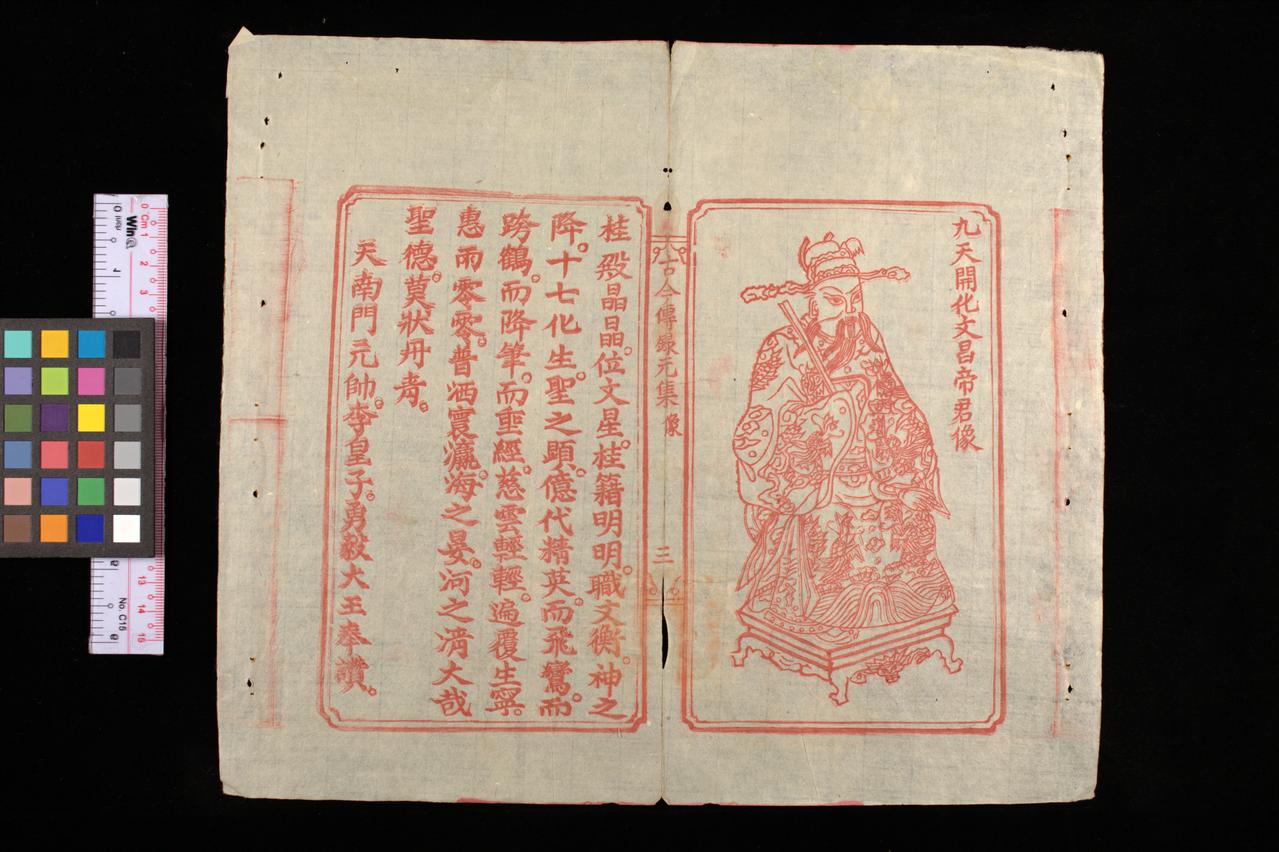 九天開化文昌帝君像
古今傳錄元集 像
三
桂殿晶晶。位文星。桂籍明明。職文衡。神之
降。十七化生。聖之顕。億代精英。而飛鸞。而
跨鶴。而降筆。而垂經。慈雲輕輕。遍覆生寧。
惠雨零零。普洒寰瀛。海之晏。河之清大哉
聖德。莫狀丹青。
天南門元帥。李皇子。勇毅大王奉讚。
0 Cm 1
2
3
13
14
15
No. C15